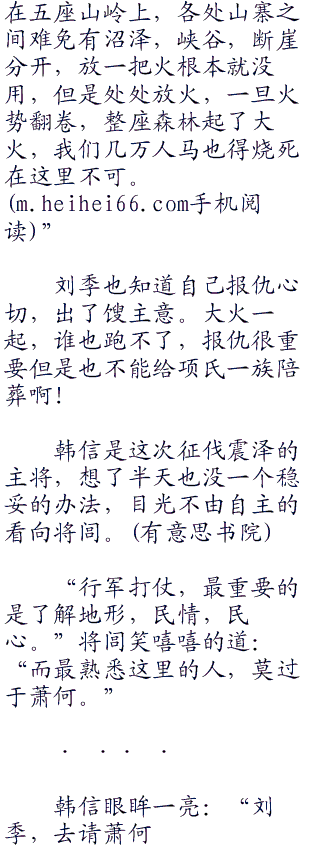 在五座山岭上，各处山寨之
间难免有沼泽，峡谷，断崖
分开，放一把火根本就没
用，但是处处放火，一旦火
势翻卷，整座森林起了大
火，我们几万人马也得烧死
在这里不可。
(m.heihei66.com手机阅
读)”
刘季也知道自己报仇心
切，出了馊主意。大火一
起，谁也跑不了，报仇很重
要但是也不能给项氏一族陪
葬啊！
韩信是这次征伐震泽的
主将，想了半天也没一个稳
妥的办法，目光不由自主的
看向将闾。(有意思书院)
“行军打仗，最重要的
是了解地形，民情，民
心。”将闾笑嘻嘻的道：
“而最熟悉这里的人，莫过
于萧何。”
． ．．． ．
韩信眼眸一亮：“刘
季，去请萧何